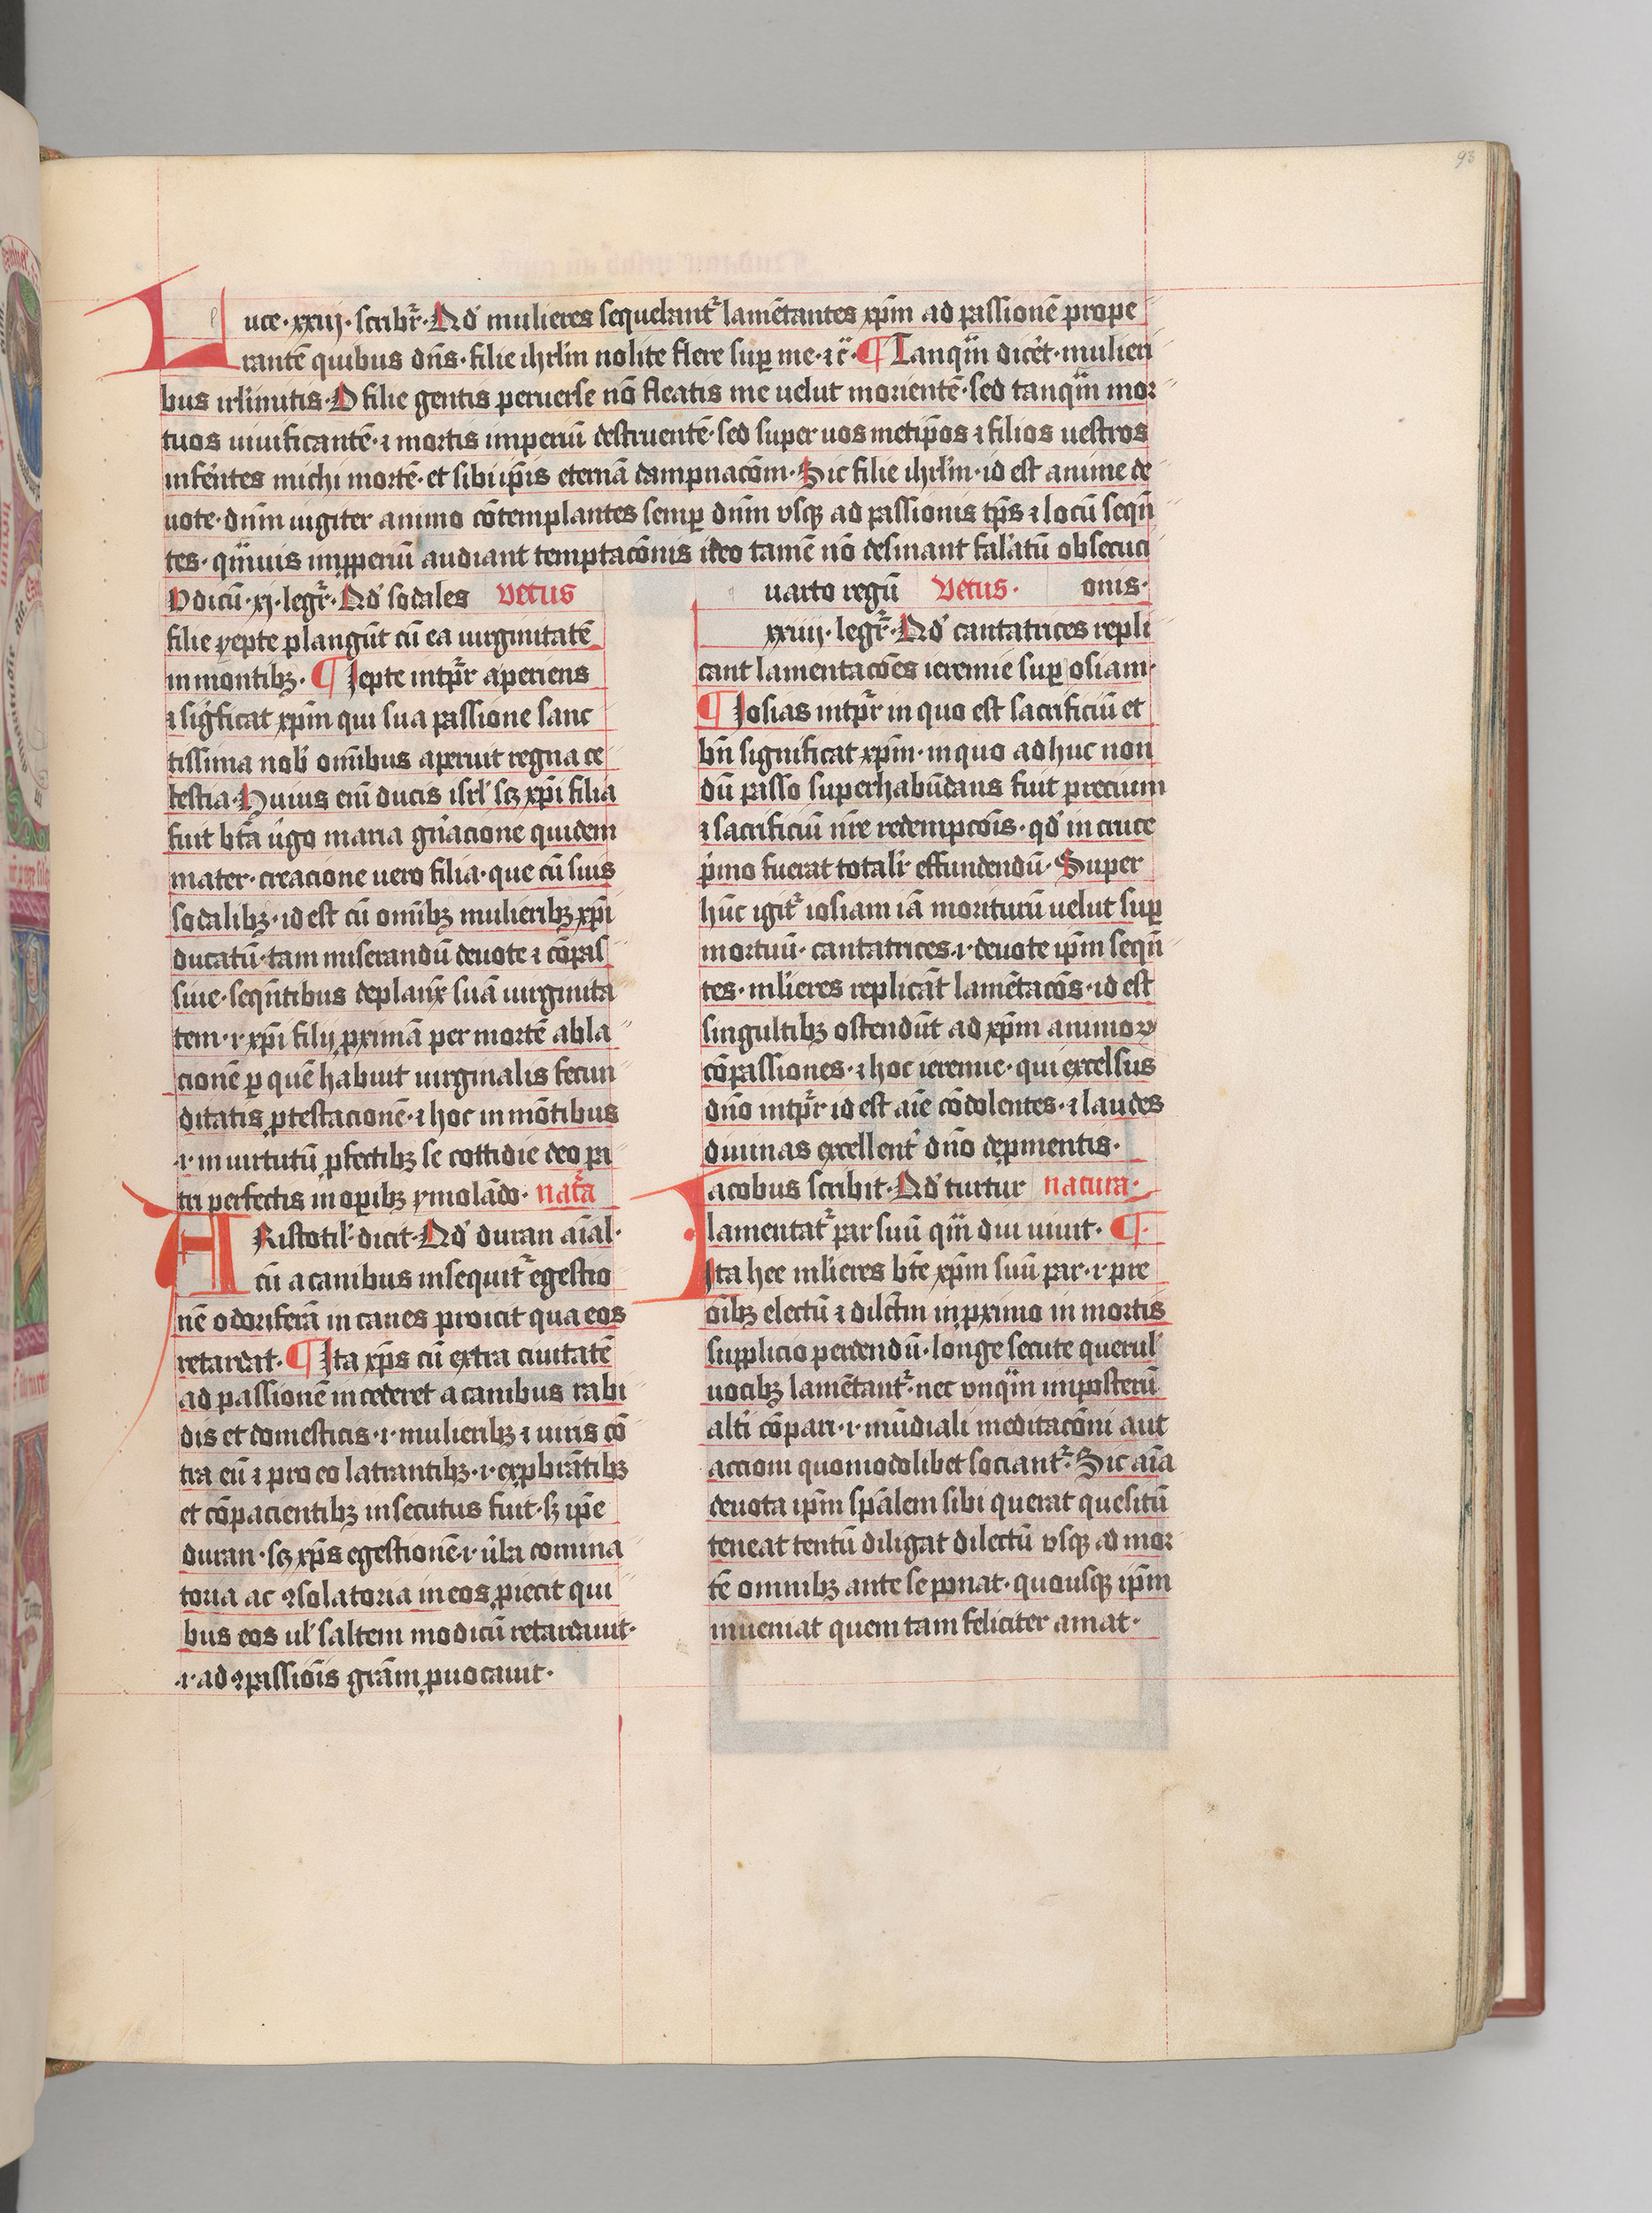 93
Luce · xxiij · scribr̄ · Qd' mulieres sequebant᷑ lamētantes xp̄m ad passionē prope
rantē quibus dn̄s · filie ihrl'm nolite flere sup me · ⁊ c̄ · ¶ Tanq̈m dicēt · mulieri
bus irl'imitis · O filie gentis peruerse nō fleatis me uelut morientē · sed tanq̈m mor
tuos uiuificantē · ⁊ mortis imperiū destruentē · sed super uos metip̄os ⁊ filios uestros
inferētes michi mortē · et sibi ip̄is eternā dampnacōm · Sic filie ihrl'm · id est anime de
uote · dn̄m iugiter animo cōtemplantes semp dn̄m vsq; ad passionis tp̄s ⁊ locū seqn̄
tes · q̈muis impperiū audiant temptacōnis ideo tamē nō desinant fal'atū obsecuci
onis ·
Vdicū · xj · legr̄ · Qd' sodales vetus
filie yepte plangūt cū ea uirginitatē
in montib; · ¶ Jepte intp̄r aperiens
⁊ siḡficat xp̄m qui sua passione sanc
tissima nob' om̄ibus aperuit regna ce
lestia · Huius em̄ ducis isrl' sc; xp̄i filia
fuit bt̄a ūgo maria gn̄acione quidem
mater · creacione uero filia · que cū suis
sodalib; · id est cū om̄ib; mulierib; xp̄i
ducatū · tam miserandū deuote ⁊ cōpas
siue · seqn̄tibus deplanx̄ suā uirginita
tem · i · xp̄i filij p̱ximā per mortē abla
cionē p quē habuit uirginalis fecun
ditatis p̱testacionē · ⁊ hoc in mōtibus
· i · in uirtutū p̱fectib; se cottidie deo pa
tri perfectis in opib; ymolādo · nat̄a
ARistotil' dicit · Qd' duran aīal ·
cū a canibus insequit᷑ egestio
nē odoriferā in canes proicit qua eos
retardat · ¶ Ita xp̄s cū extra ciuitatē
ad passionē incederet a canibus rabi
dis et domesticis · i · mulierib; ⁊ uiris cō
tra eū ⁊ pro eo latrantib; · i · exp̱brātib;
et cōpacientib; insecutus fuit · s; ip̄e
duran · sc; xp̄s egestionē · i · ūba comina
toria ac ꝯsolatoria in eos p̱iecit qui
bus eos ul' saltem modicū retardauit ·
· i · ad ꝯpassiōis grām p̱uocauit ·
uarto regū Vetus ·
xxiij · legr̄ · Qd' cantatrices repli
cant lamentacōes ieremie sup osiam ·
¶ Josias intp̄r in quo est sacrificiū et
bn̄ significat xp̄m · in quo ad huc non
dū passo superhabūdans fuit precium
⁊ sacrificiū nr̄e redempcōis · qd' in cruce
p̄mo fuerat totalr̄ effundendū · Super
hūc igit᷑ iosiam iā moriturū uelut sup
mortuū · cantatrices · i · deuote ip̄m seqn̄
tes · ml'ieres replicāt lamētacōs · id est
singultib; ostendūt ad xp̄m animoꝝ
cōpassiones · ⁊ hoc ieremie · qui excelsus
dn̄o intp̄r id est aīe cōdolentes · ⁊ laudes
diuinas excellent' dn̄o dep̱mentis ·
Jacobus scribit · Qd' turtur natura ·
lamentat᷑ par suū q̈m diu uiuit · ¶
Ita hee ml'ieres bt̄e xp̄m suū par · i · pre
oīb; electū ⁊ dilc̄tm in p̱ximo in mortis
supplicio perdendū · longe secute querul'
uocib; lamētant᷑ · nec vnq̈m imposterū
alt'i cōpari · i · mūdiali meditacōni aut
accioni quomodolibet sociant᷑ · Sic aīa
deuota ip̄m sp̄alem sibi querat quesitū
teneat tentū diligat dilectū vsq; ad mor
tē omnib; ante se ponat · quousq; ip̄m
inueniat quem tam feliciter amat ·